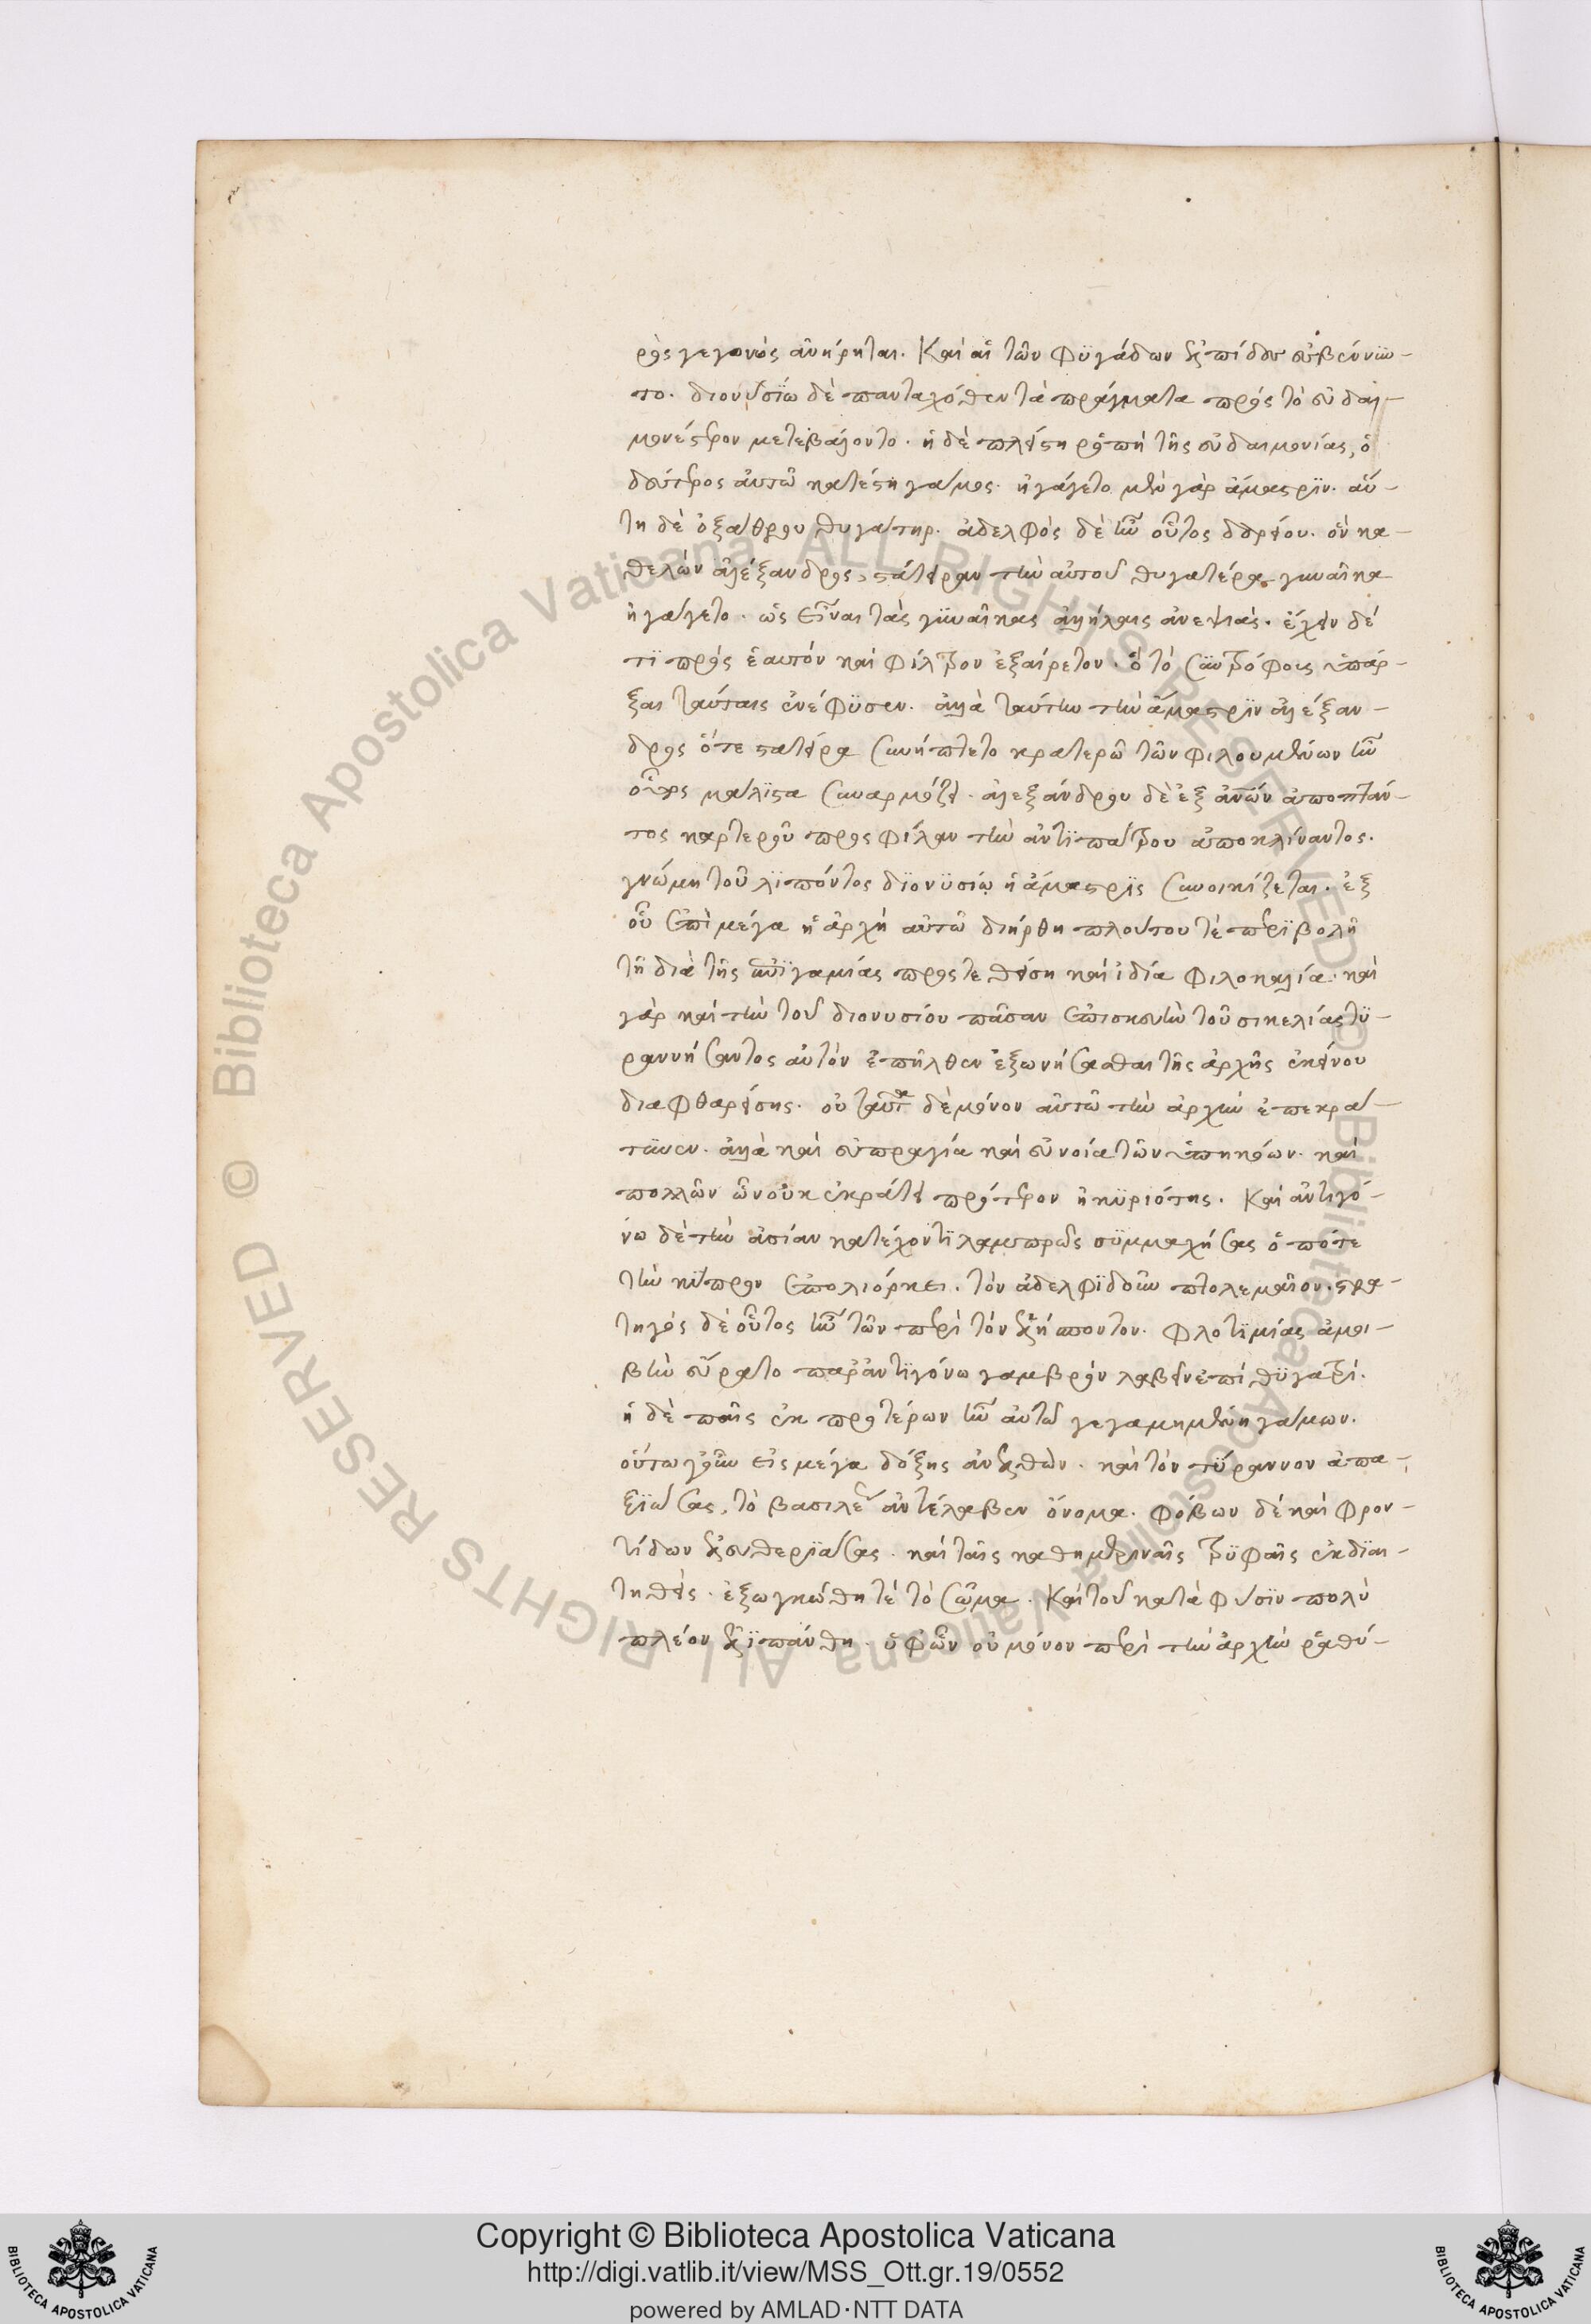 ρὸς γεγονὼς ἀνήρηται. Καὶ αἱ τῶν φϋγάδων ἐλπίδες ἐσβέννϋν-
το. διονυσίω δὲ πανταχόθεν τὰ πράγματα πρὸς τὸ εὐδαι-
μονέστερον μετεβάλλοντο. ἡ δὲ πλείστη ῥοπὴ τῆς εὐδαιμονίας, ὁ
δεύτερος αὐτῶ κατέστη γάμος. ἠγάγετο μὲν γὰρ ἄμαστριν. αὕ-
τη δὲ ὀξάθρου θυγάτηρ. ἀδελφὸς δὲ ἦν οὗτος δαρείου. ὃν κα-
θελὼν ἀλέξανδρος, στάτειραν τὴν αὐτοῦ θυγατέρα γυναῖκα
ἠγάγετο. ὡς εἶναι τὰς γϋναῖκας ἀλλήλαις ἀνεψιάς. ἔχειν δέ
τϊ πρὸς ἑαυτὸν καὶ φίλτρον ἐξαίρετον. ὃ τὸ σϋντρόφοις ὑπάρ-
ξαι ταύταις ἐνέφϋσεν. ἀλλὰ ταύτην τὴν ἄμαστρϊν ἀλέξαν-
δρος ὅτε στατείρα συνήπτετο κρατερῶ τῶν φιλουμένων ἦν
οὗτος μάλϊστα συναρμόζει. ἀλεξάνδρου δὲ ἐξ ἀνῶν ἀποπτάν-
τος καρτεροῦ προς φίλαν τὴν ἀντϊπάτρου ἀποκλίναντος.
γνώμη τοῦ λϊπόντος δϊονϋσίω ἡ ἄμαστρϊς συνοικίζεται. ἐξ
οὗ ἐπὶ μέγα ἡ ἀρχὴ αὐτῶ διήρθη πλούτου τὲ περϊβολῆ
τῆ διὰ τῆς ἐπϊγαμίας προστεθείση καὶ ἰδία φιλοκαλία. καὶ
γὰρ καὶ τὴν τοῦ διονυσίου πᾶσαν ἐπισκευὴν τοῦ σικελίας τϋ-
ραννήσαντος αὐτὸν ἐπῆλθεν ἐξωνήσασθαι τῆς ἀρχῆς ἐκείνου
διαφθαρείσης. οὐ ταῦτα δὲ μόνον αὐτῶ τὴν ἀρχὴν ἐπεκρά-
τϋνεν. ἀλλὰ καὶ εὐπραγία καὶ εὔνοια τῶν ὑπηκόων. καὶ
πολλῶν ὧν οὐκ ἐκράτει πρότερον ἡ κϋριότης. Καὶ ἀντιγό-
νω δὲ τὴν ἀσίαν κατέχοντϊ λαμπρῶς σϋμμαχήσας ὁπότε
τὴν κϋπρον ἐπολιόρκει. τὸν ἀδελφϊδοῦν πτολεμαῖον. στρα-
τηγὸς δὲ οὗτος ἦν τῶν περὶ τὸν ἑλλήσποντον. φιλοτϊμίας ἀμοι-
βὴν εὕρατο παρ ἀντϊγόνω γαμβρὸν λαβεῖν ἐπὶ θϋγατρί.
ἡ δὲ παῖς ἐκ προτέρων ἦν αὐτῶ γεγαμημένη γάμων.
οὕτω γοῦν εἰς μέγα δόξης ἀνελθὼν. καὶ τὸν τϋραννον ἀπα-
ξϊώσας, τὸ βασιλέως ἀντέλαβεν ὄνομα. φόβων δὲ καὶ φρον-
τίδων ἐλευθερϊάσας. καὶ ταῖς καθημερϊναῖς τρϋφαῖς ἐκδϊαι-
τηθεὶς. ἐξωγκώθη τὲ τὸ σῶμα. Καὶ τοῦ κατὰ φύσϊν πολὺ
πλέον ἐλϊπάνθη. ὑφ ὧν οὐ μόνον περὶ τὴν ἀρχὴν ῥαθύ-
Copyright © Biblioteca Apostolica Vaticana
http://digi.vatlib.it/view/MSS_Ott.gr.19/0552
powered by AMLAD·NTT DATA